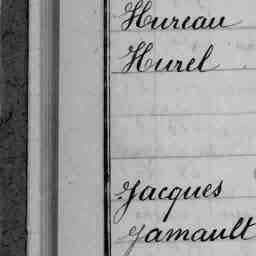 Hureau
Hurel
Jacques
Jamault